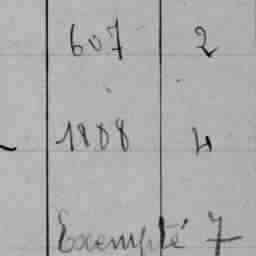 607 2
1888 4
Exempté 7